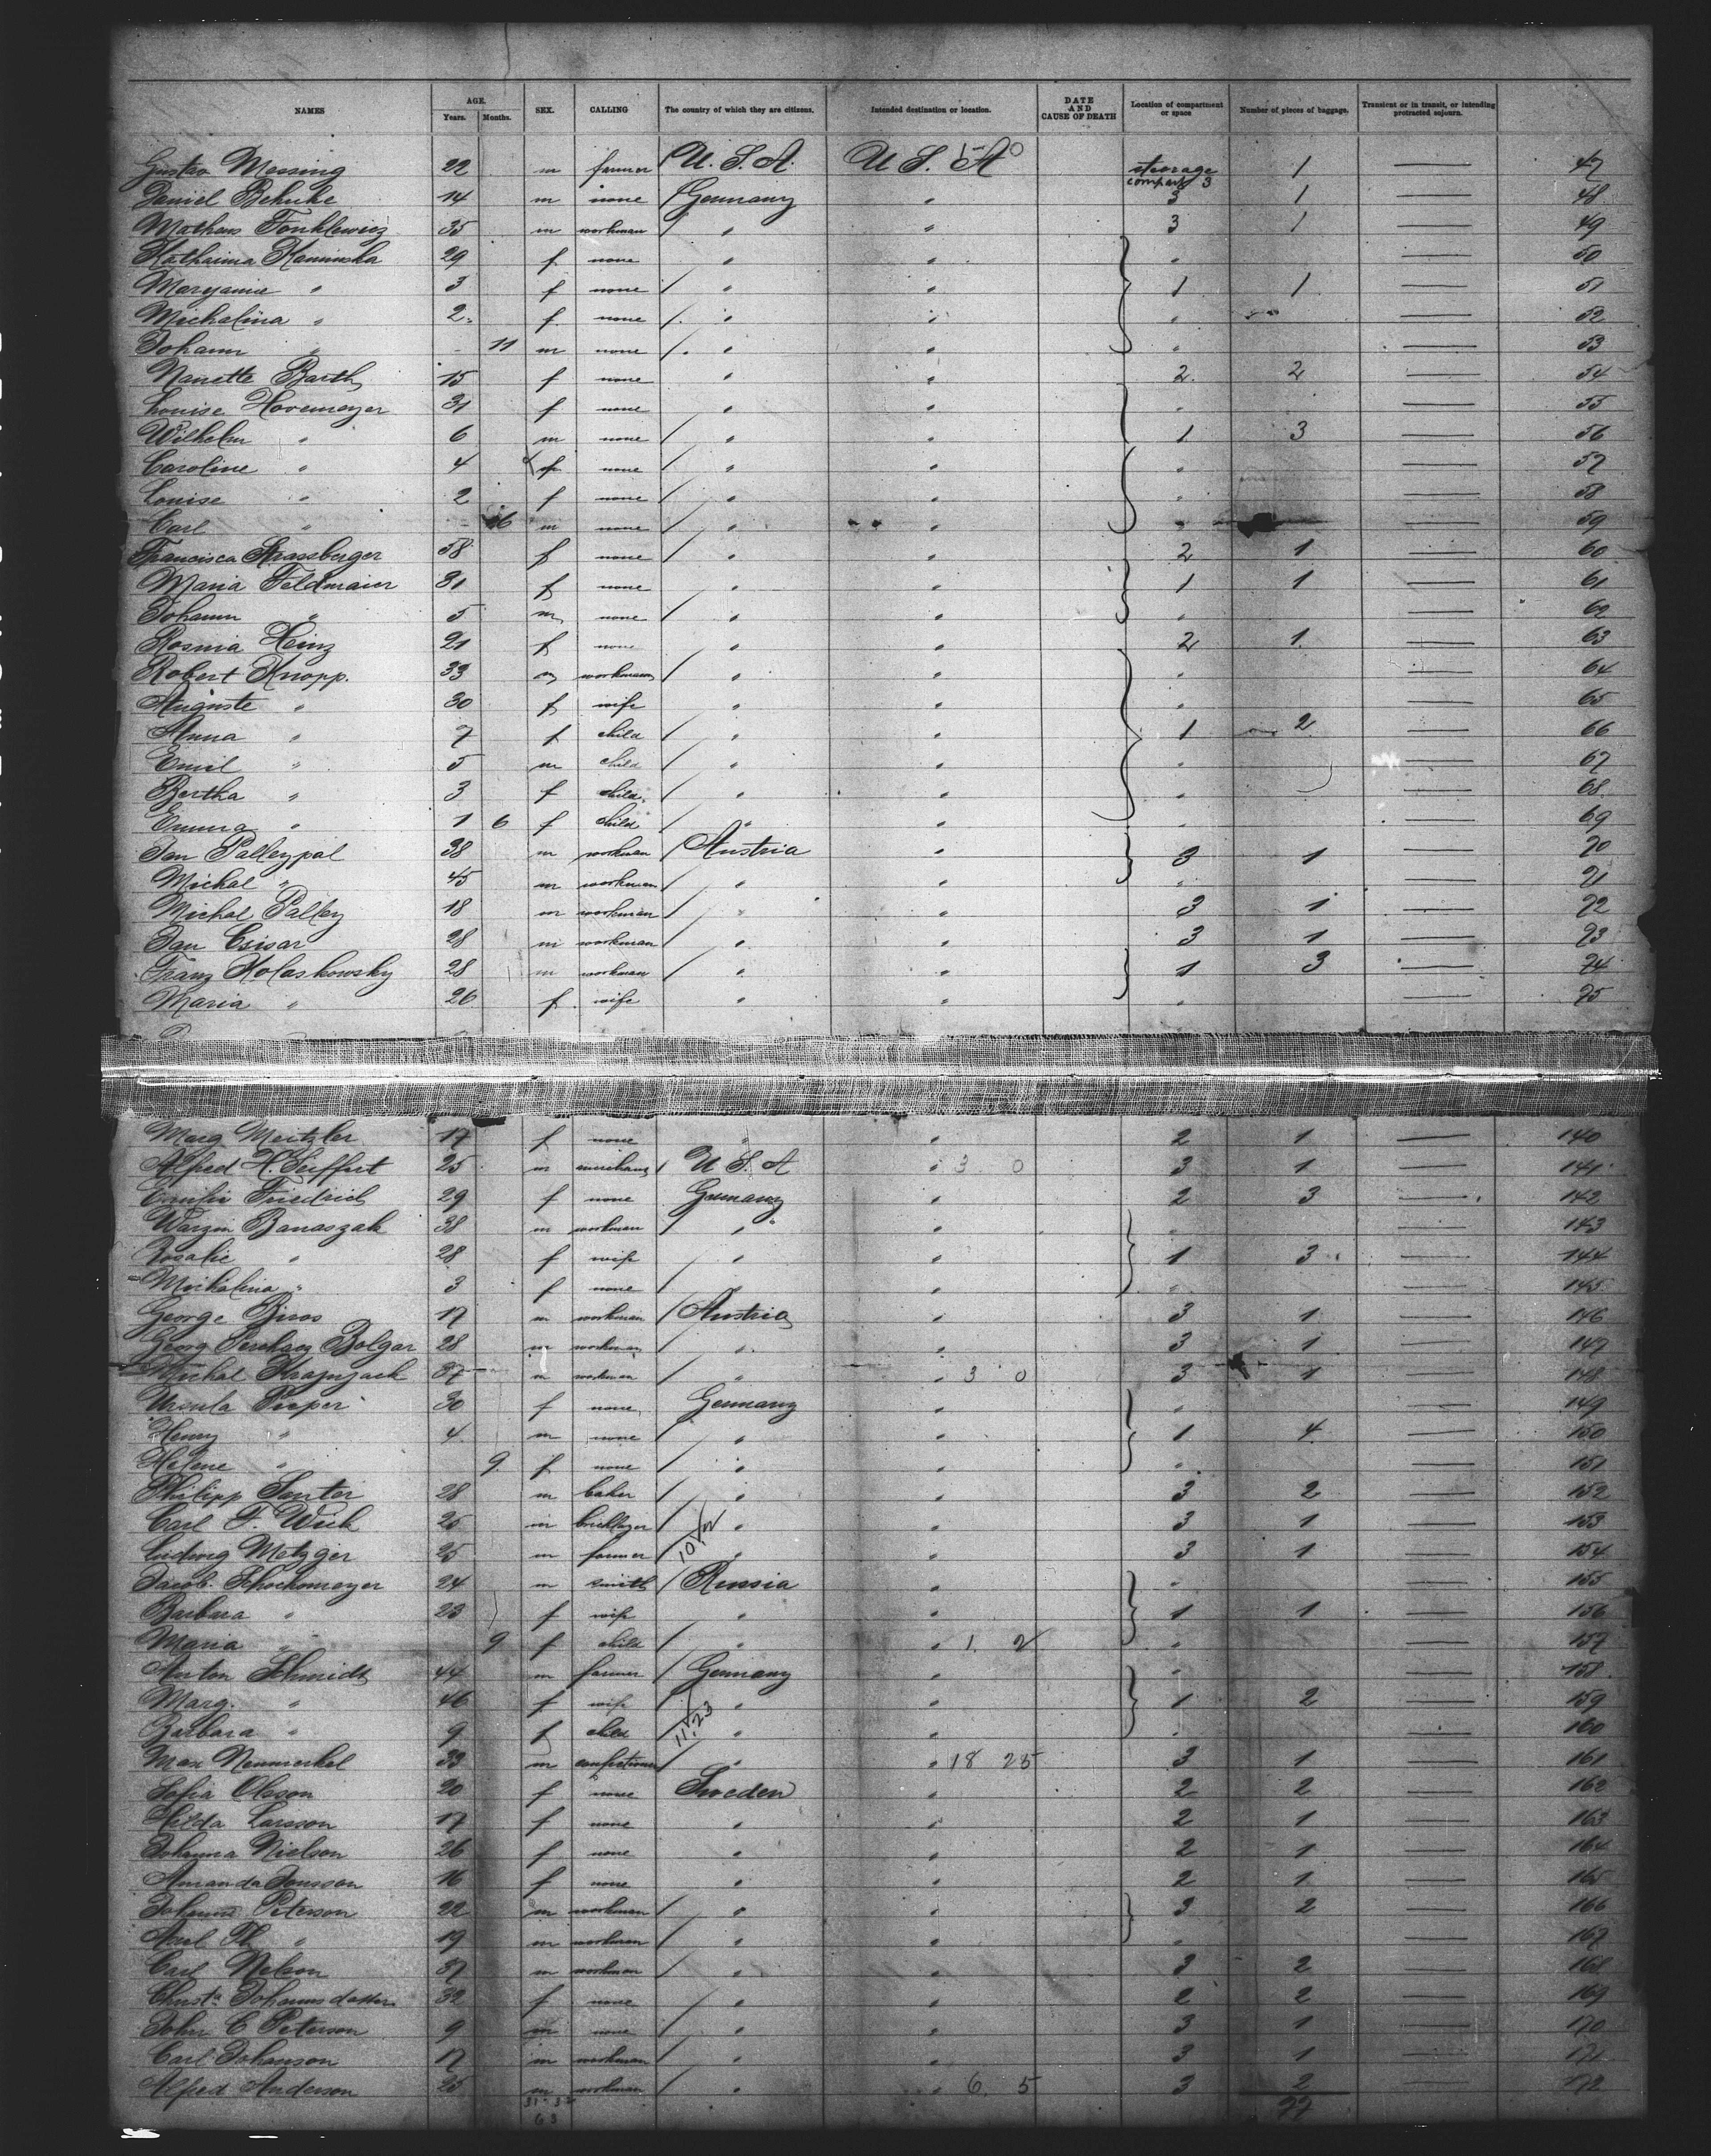 NAMES AGE. Years. Months. SEX. CALLING The country of which they are citizens. Intended destination or location. DATE AND CAUSE OF DEATH Location of compartment or space Number of pieces of baggage. Transient or in transit, or intending protracted sojourn.
Gustav Messing 22 m farmer U.S.A. U S. A steerage compart 3 1 — 47
Daniel Behnke 14 m none Germany " 3 1 — 48
35 m workman " " 3 1 — 49
Katharina Kaminska 29 f none " " " — 50
Maryanne " 3 f none " " 1 1 — 51
Michalina " 2 f none " " " — 52
Johann " 11 m none " " " — 53
Nanette Barth 15 f none " " 2 2 — 54
Louise Hovemeyer 31 f none " " " — 55
Wilhelm " 6 m none " " 1 3 — 56
Caroline " 4 f none " " " — 57
Louise " 2 f none " " " — 58
Carl " 6 m none " " " — 59
Francisca Strassberger 58 f none " " 2 1 — 60
Maria Feldmaier 31 f none " " 1 1 — 61
Johann " 5 m none " " " — 62
Rosina Heinz 21 f none " " 2 1 — 63
Robert Knopp. 33 m workman " " " — 64
Auguste " 30 f wife " " " — 65
Anna " 7 f child " " 1 2 — 66
Emil " 5 m child " " " — 67
Bertha " 3 f child " " " — 68
Emma " 1 6 f child " " " — 69
Jan Palleypal 38 m workman Austria " 3 1 — 70
Michal " 45 m workman " " " — 71
Michal Palley 18 m workman " " 3 1 — 72
Jan Csisar 28 m workman " " 3 1 — 73
Franz Kolaskowsky 28 m workman " " 1 3 — 74
Maria " 26 f wife " " " — 75
Marg Meitzler 17 f none " " 2 1 — 140
Alfred H. Seiffert 25 m merchant U S. A " 3 0 3 1 — 141
Emilie Friedrich 29 f none Germany " 2 3 — 142
Banaszak 38 m workman " " " — 143
Rosalie " 28 f wife " " 1 3 — 144
Michalina " 3 f none " " " — 145
George Biros 17 m workman Austria " 3 1 — 146
Georg Bolgar 28 m workman " " 3 1 — 147
Michal Krajnzack 37 m workman " " 3 0 3 1 — 148
Ursula Pieper 30 f none Germany " " — 149
Henry " 4 m none " " 1 4 — 150
Helene " 9 f none " " " — 151
Philipp Senter 28 m baker " " 3 2 — 152
Carl F. Wick 25 m bricklayer " " 3 1 — 153
Ludwig Metzger 25 m farmer 10/12 " " 3 1 — 154
Jacob Schockomayer 24 m smith Russia " " — 155
Barbara " 23 f wife " " 1 1 — 156
Maria " 9 f child " " 1. 2 " — 157
Anton Schmidt 44 m farmer Germany " " — 158
Marg. " 46 f wife " " 1 2 — 159
Barbara " 9 f child 11/23 " " " — 160
Max Neumerkel 33 m confectioner " " 18 25 3 1 — 161
Sofia Olsson 20 f none Sweden " 2 2 — 162
Hilda Larsson 17 f none " " 2 1 — 163
Johanna Nielson 26 f none " " 2 1 — 164
Amanda Jonsson 16 f none " " 2 1 — 165
Johannes Peterson 22 m workman " " 3 2 — 166
Axel Th " 19 m workman " " " — 167
Carl Nelson 37 m workman " " 3 2 — 168
Christa Johannsdotter 32 f none " " 2 2 — 169
John C Peterson 9 m none " " 3 1 — 170
Carl Johanson 17 m workman " " 3 1 — 171
Alfred Anderson 25 m workman " " 6 5 3 2 — 172
63 77